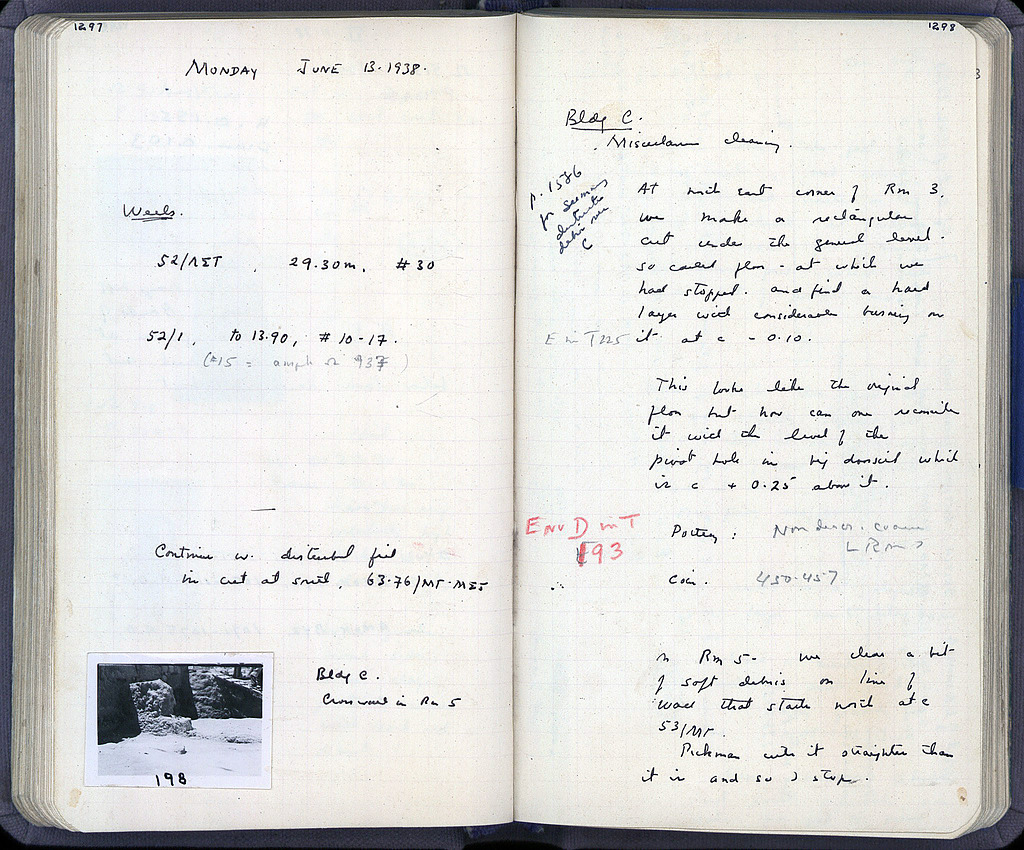 1297
MONDAY JUNE 13.1938.
Wells.
52/ΛΣΤ, 29.30m, #30
52/1, to 13.90, #10-17.
(#15 = amph
Continue w. disturbed fill
in cut at south, 63.76/ΜΓ-ΜΣΤ
Bldg C.
Crosswall in Rm 5
198
1298
3
Bldg C.
Miscellaneous cleaning.
p. 1586
for
disturbed
debris
C
At north east corner of Rm 3.
we make a rectangular
cut under the general level.
so called floor - at which we
had stopped. and find a hard
layer with considerable burning on
it at c - 0.10.
E in T225
This looks like the original
floor but how can one reconcile
it with the level of the
pivot hole in big doorsill which
is c + 0.25 above it.
Env D in T
193
Pottery: Non descr. coarse
Rm 3
Coin. 450-457
In Rm 5- we clear a bit
of soft debris on line of
wall that starts north at c
53/ΜΓ.
Pickman cuts it straighter than
it is and so I stop.